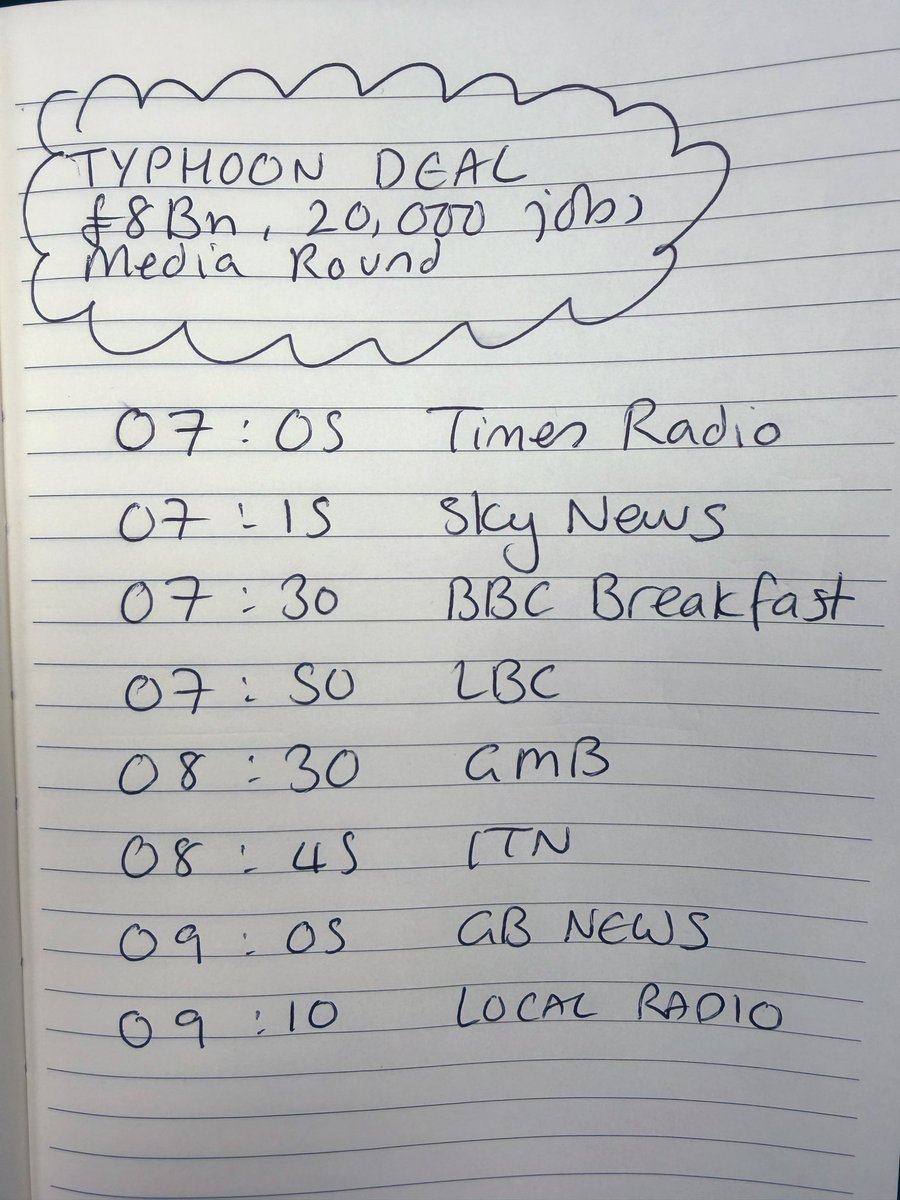 TYPHOON DEAL
£8Bn, 20,000 jobs
Media Round
07:05 Times Radio
07:15 Sky News
07:30 BBC Breakfast
07:50 LBC
08:30 GMB
08:45 ITN
09:05 GB NEWS
09:10 LOCAL RADIO